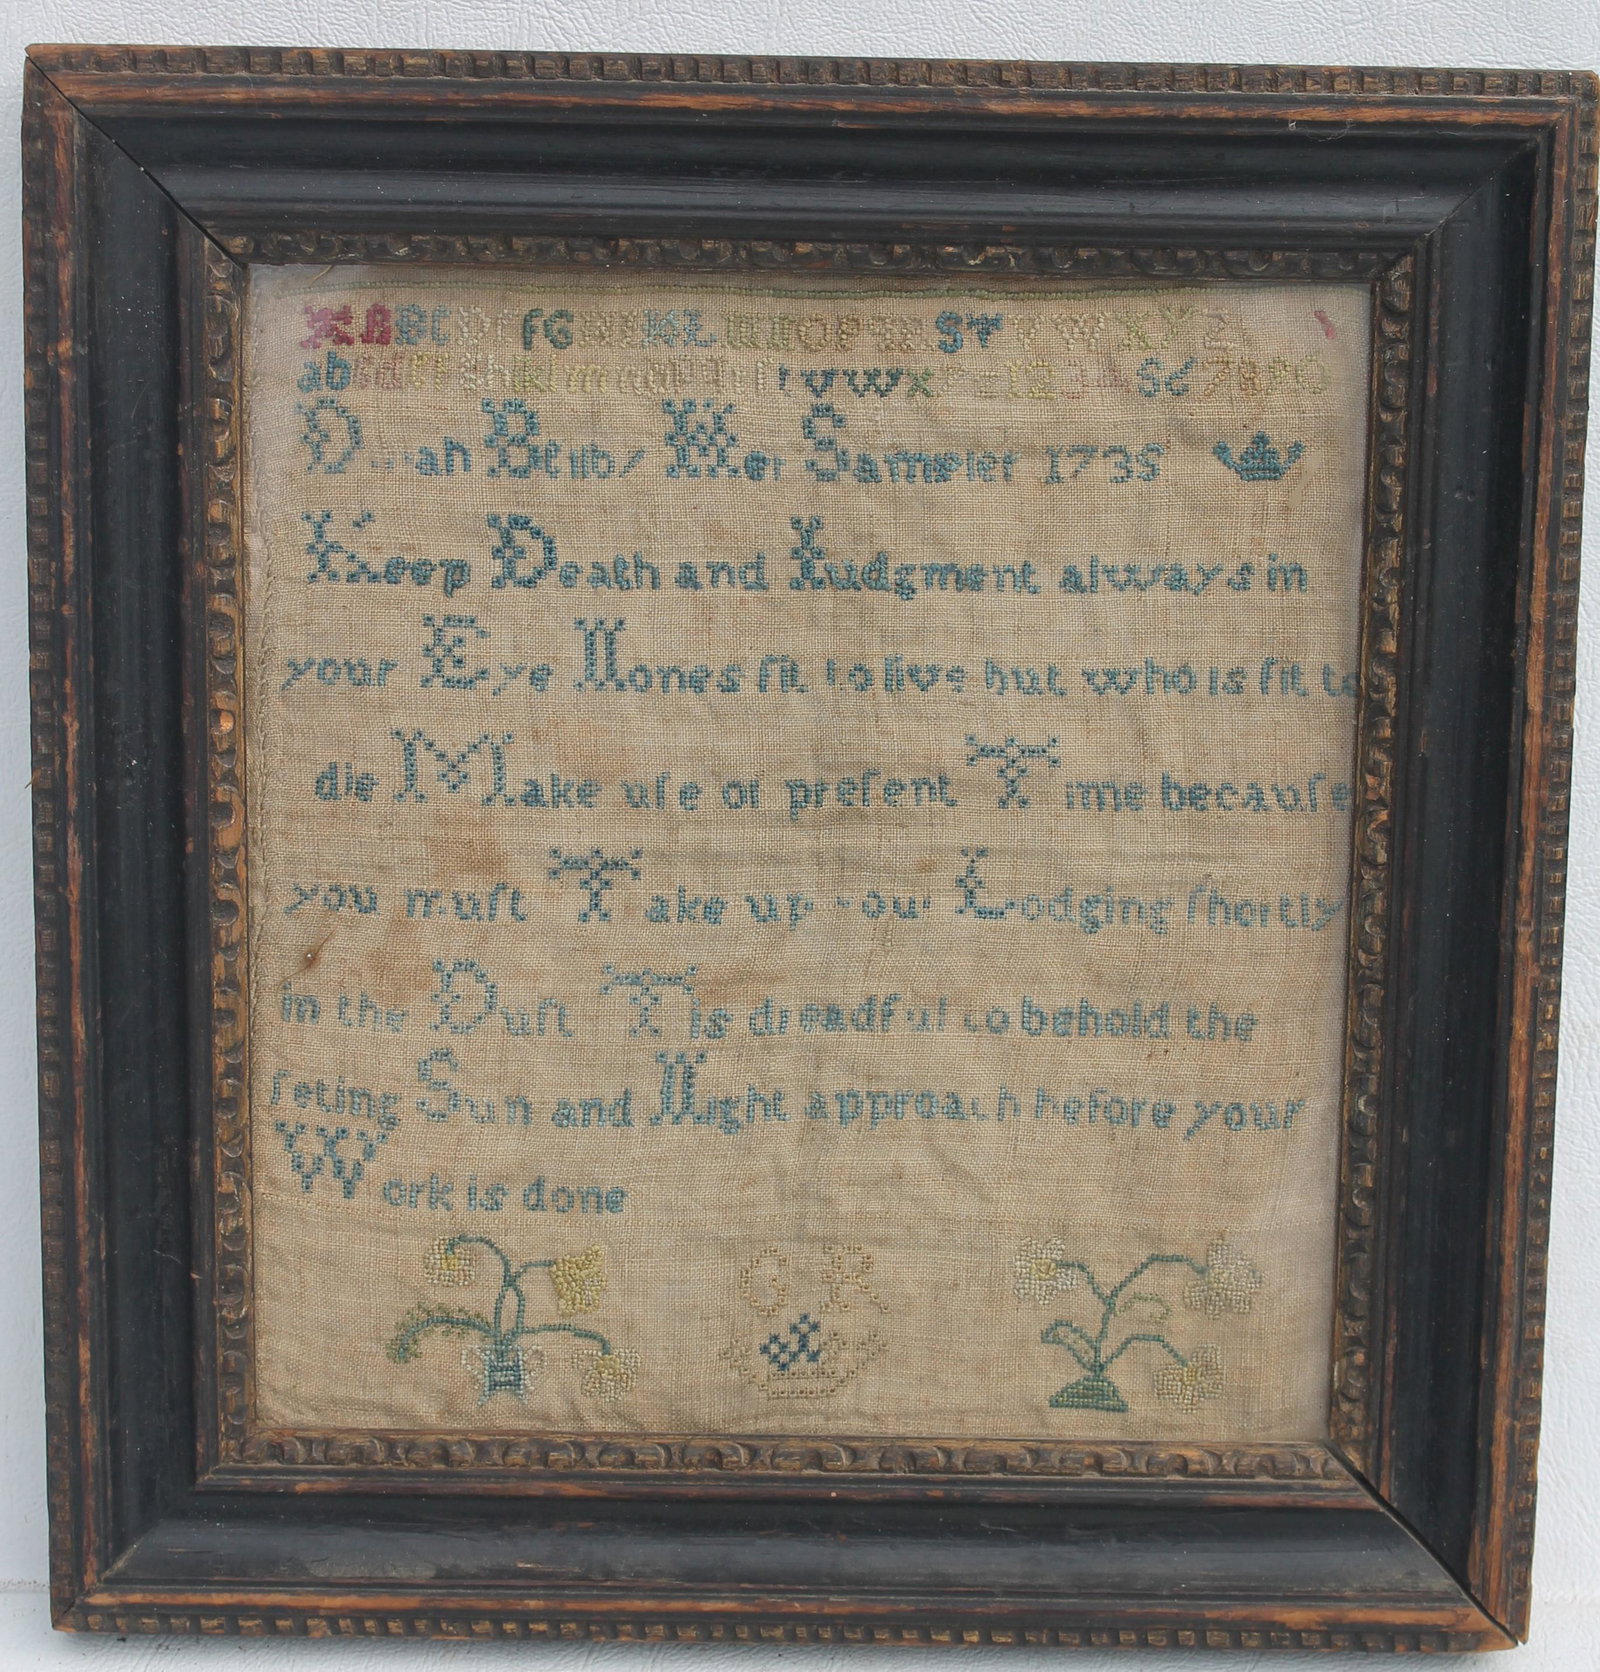 A B C D E F G H I K L M N O P Q R S T V W X Y Z
a b c d e f g h i k l m n o p q r s t v w x y z 1 2 3 4 5 6 7 8 9 10
Her Sampler 1735
Keep Death and Iudgment always in
your Eye Nones fit to live but who is fit to
die Make uſe of preſent Time because
you muſt Take up your Lodging ſhortly
in the Duſt Tis dreadful to behold the
ſeting Sun and Night approach before your
Work is done
G R